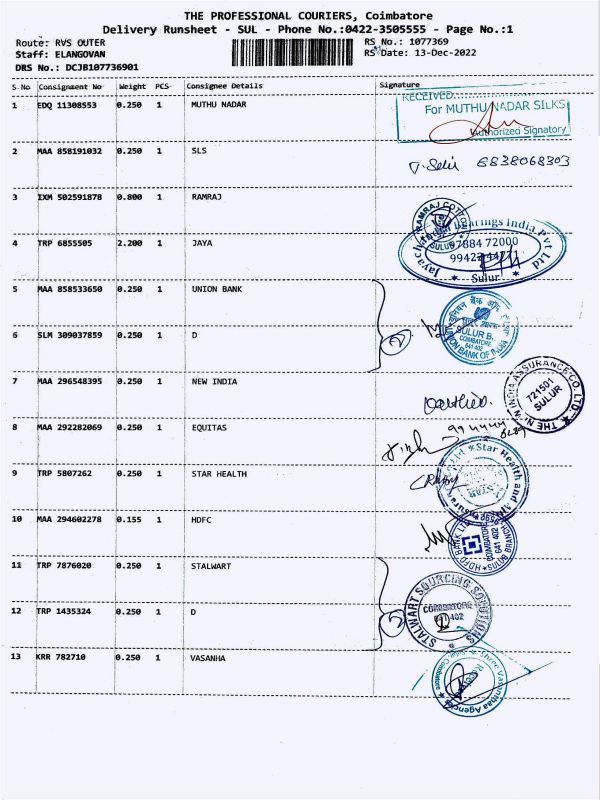 THE PROFESSIONAL COURIERS, Coimbatore
Delivery Runsheet - SUL - Phone No.:0422-3505555 - Page No.:1
Route: RVS OUTER RS No.: 1077369
Staff: ELANGOVAN RS Date: 13-Dec-2022
DRS No.: DCJB107736901
S No Consignment No Weight PCS Consignee Details Signature
1 EDQ 11308553 0.250 1 MUTHU NADAR
RECEIVED
For MUTHU NADAR SILKS
Authorized Signatory
2 MAA 858191032 0.250 1 SLS
6838068303
3 IXM 502591878 0.800 1 RAMRAJ
RAMRAJ COTTON
SULUR
4 TRP 6855505 2.200 1 JAYA
Bearings India Pvt Ltd
97884 72000
Sulur
5 MAA 858533650 0.250 1 UNION BANK
UNION BANK OF INDIA
SULUR B.
COIMBATORE
641 402
6 SLM 309037859 0.250 1 D
2
7 MAA 296548395 0.250 1 NEW INDIA
THE NEW INDIA ASSURANCE CO. LTD.
721501
SULUR
8 MAA 292282069 0.250 1 EQUITAS
9 TRP 5807262 0.250 1 STAR HEALTH
Star Health and
10 MAA 294602278 0.155 1 HDFC
HDFC BANK LTD
COIMBATORE
641 402
SULUR BRANCH
11 TRP 7876020 0.250 1 STALWART
STALWART SOURCING SOLUTIONS
COIMBATORE
641 402
12 TRP 1435324 0.250 1 D
2
13 KRR 782710 0.250 1 VASANHA
Shree Vasanthaa Agencies